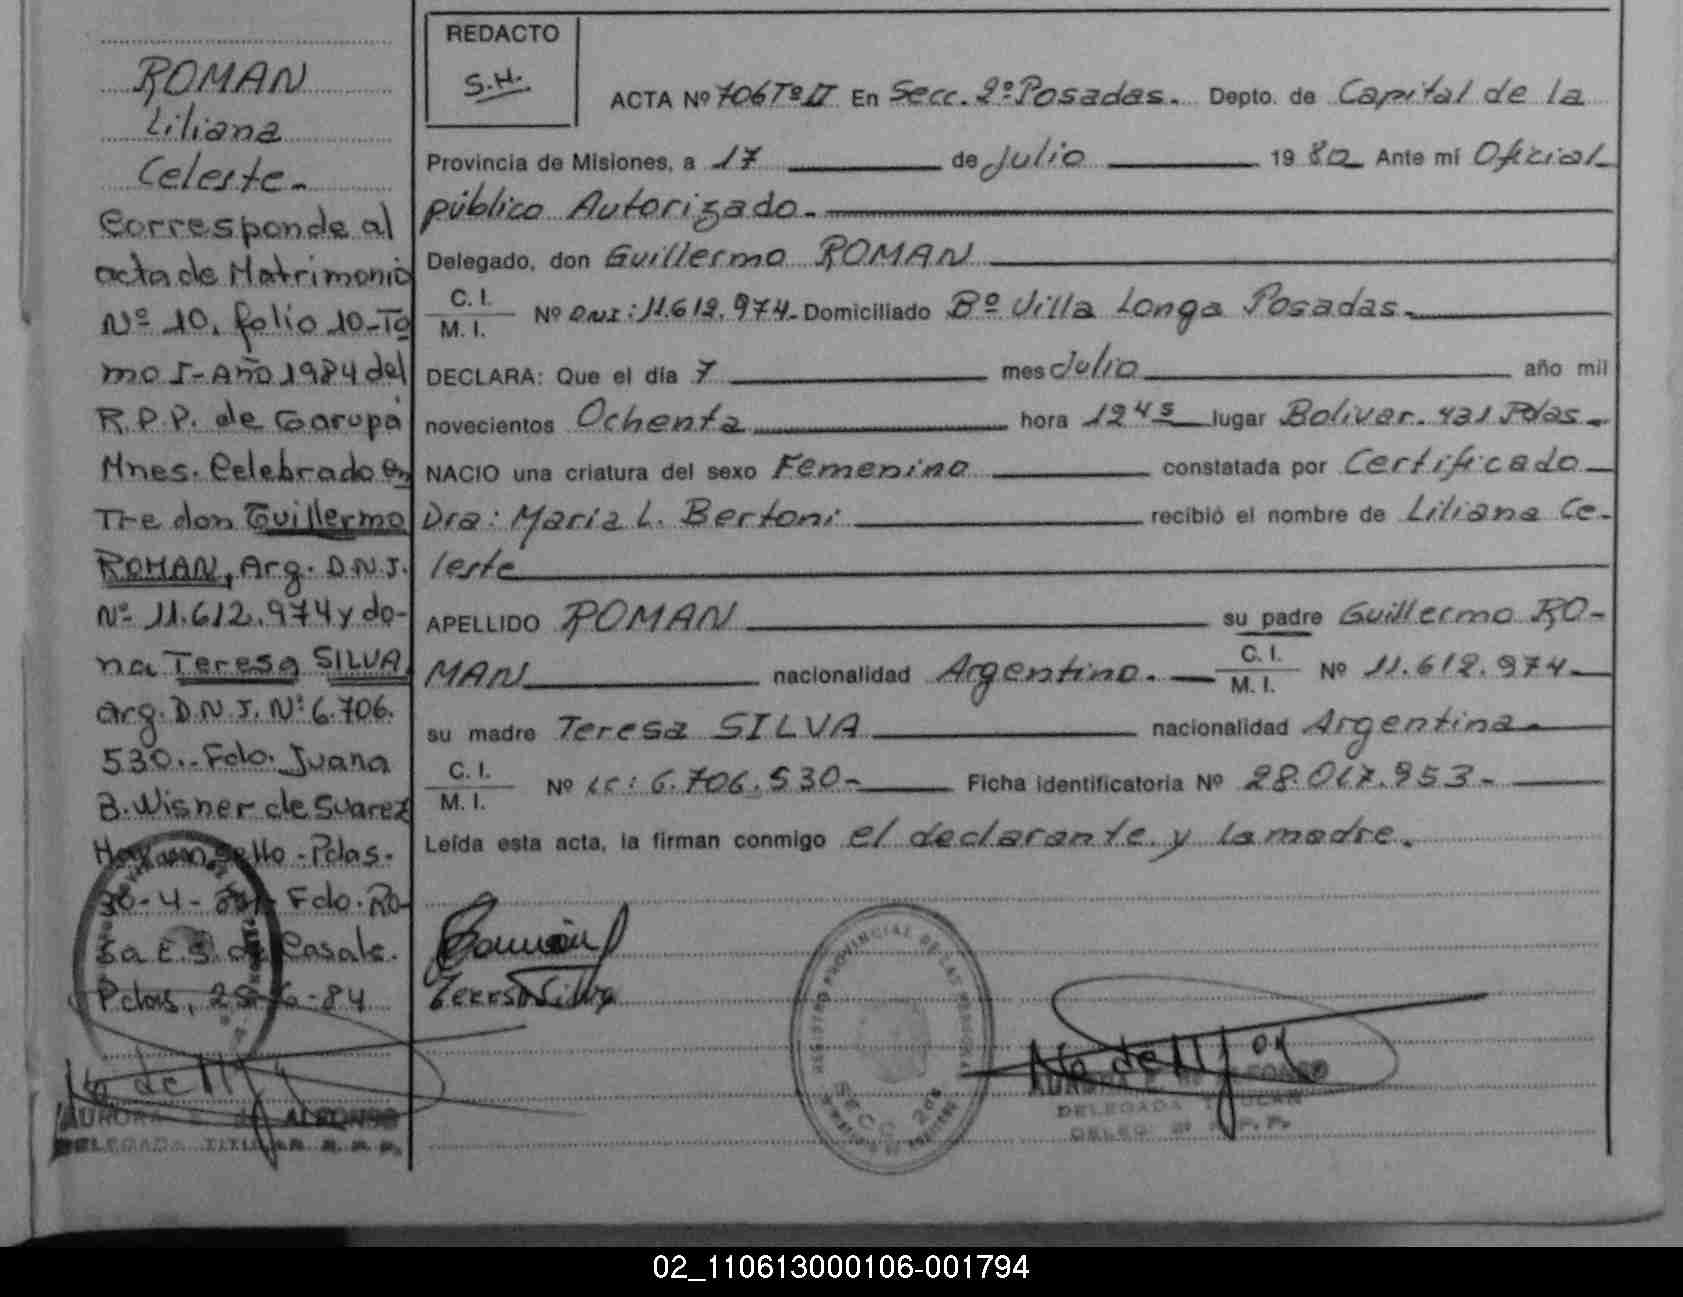 ROMAN
Liliana
Celeste.
Corresponde al
acta de Matrimonio
Nº 10, folio 10-To
mo I- Año 1984 del
R.P.P. de Garupá
Mnes. Celebrado en
Tre don Guillermo
ROMAN, Arg. D.N.I.
Nº 11.612.974 y do-
na Teresa SILVA,
arg. D.N.I. Nº 6.706.
530.- Fdo. Juana
B. Wisner de Suarez
Hay un sello - Pdas.
30-4- Fdo. Ro-
sa E.S. de Casals.
Pdas, 84
AURORA ALFONSO
DELEGADA TITULAR R.P.P.
REDACTO
S.H.
ACTA Nº 706 Tº II En Secc. 2º Posadas. Depto. de Capital de la
Provincia de Misiones, a 17 de Julio 1980 Ante mí Oficial
público Autorizado.
Delegado, don Guillermo ROMAN
C. I.
M. I. Nº DNI: 11.612.974- Domiciliado Bº Villa Longa Posadas.
DECLARA: Que el día 7 mes Julio año mil
novecientos Ochenta hora 12 45 lugar Bolivar. 431 Pdas.
NACIO una criatura del sexo Femenino constatada por Certificado
Dra: Maria L. Bertoni recibió el nombre de Liliana Ce-
leste
APELLIDO ROMAN su padre Guillermo RO-
MAN nacionalidad Argentino. C. I.
M. I. Nº 11.612.974
su madre Teresa SILVA nacionalidad Argentina.
C. I.
M. I. Nº LC: 6.706.530- Ficha identificatoria Nº 28.017.953-
Leída esta acta, la firman conmigo el declarante y la madre.
Teresa Silva
REGISTRO PROVINCIAL DE LAS PERSONAS
SECC 2da
AURORA ALFONSO
DELEGADA TITULAR
DELEG. 2ª R.P.P.
02_110613000106-001794